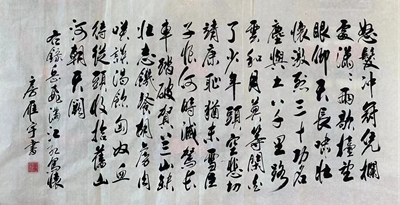 怒髮冲冠凭欄
處瀟瀟雨歇擡望
眼仰天長嘯壯
懷激烈三十功名
塵與土八千里路
雲和月莫等閒白
了少年頭空悲切
靖康恥猶未雪臣
子恨何時滅駕長
車踏破賀兰山缺
壯志饑餐胡虜肉
笑談渴飲匈奴血
待從頭收拾舊山
河朝天闕
右録岳飛滿江紅寫懷
書